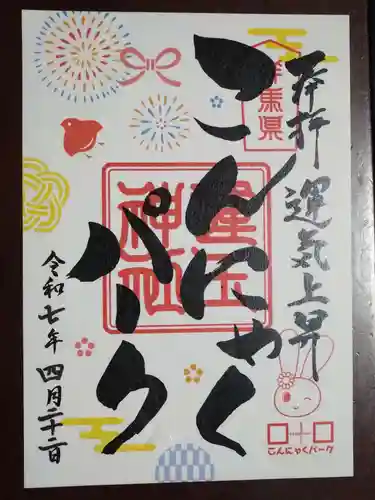 奉拝 運気上昇
群馬県
こんにゃく
パーク
令和七年 四月二十二日
こんにゃくパーク